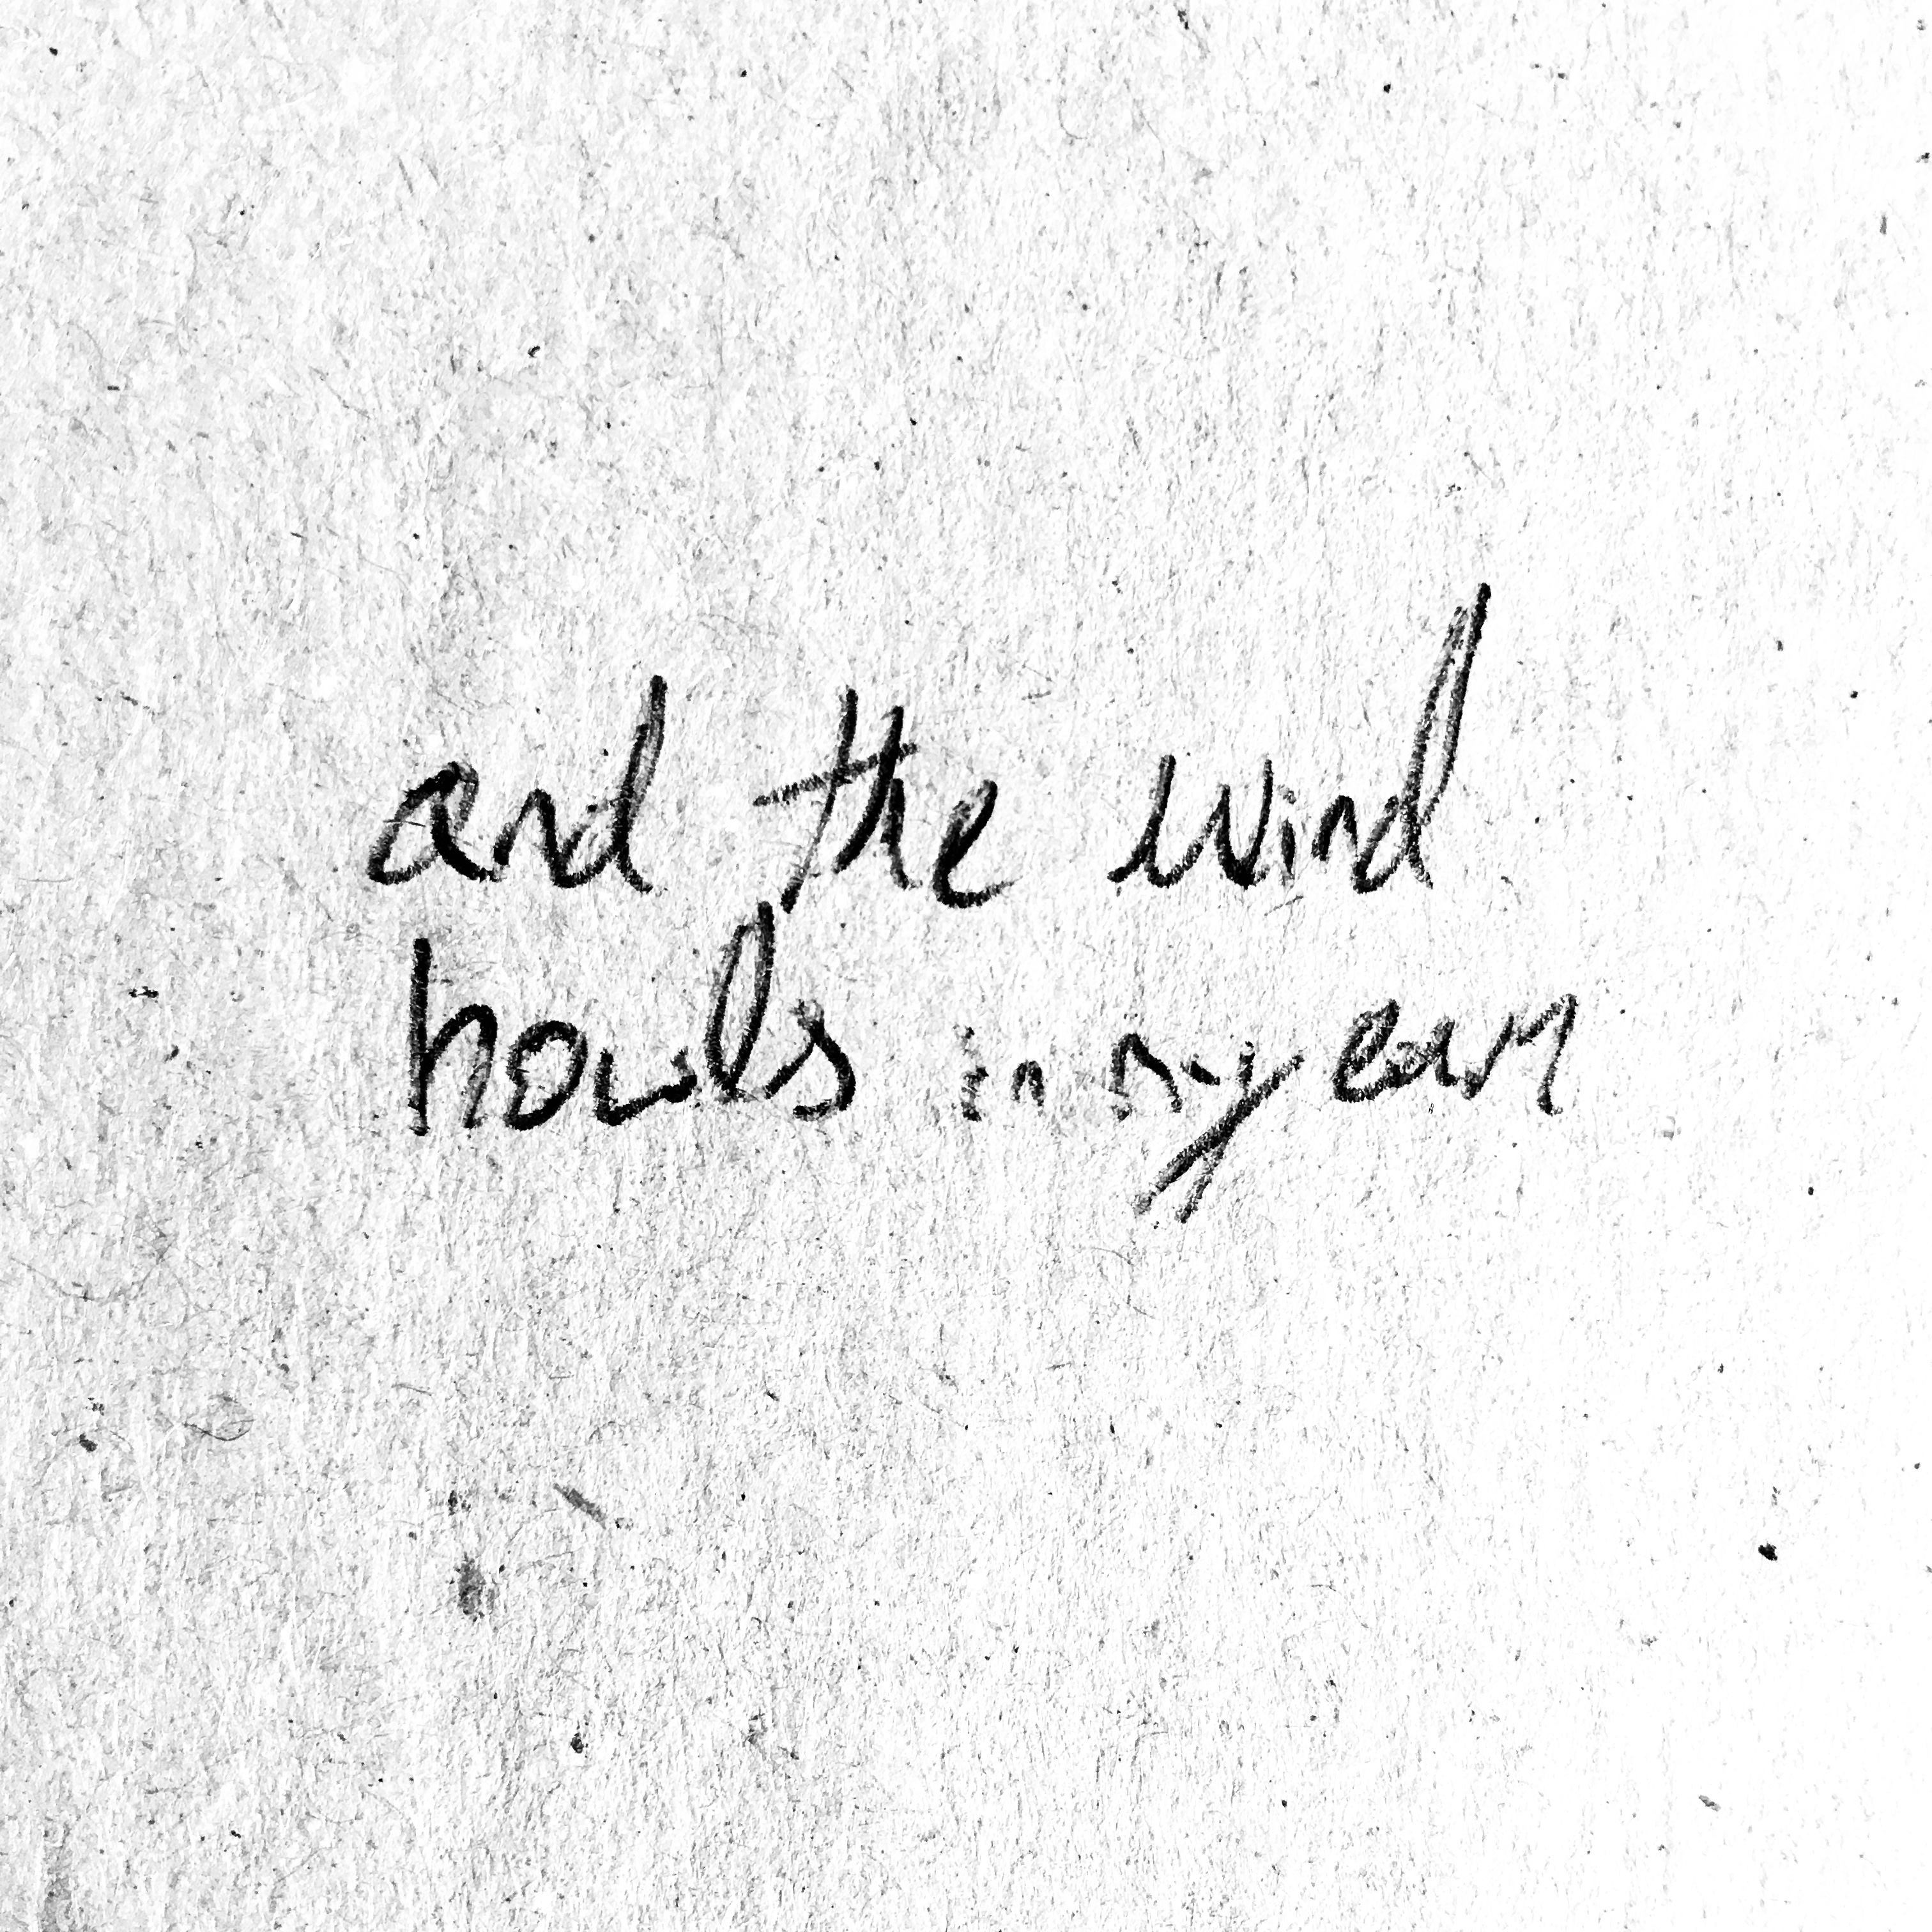 and the wind
howls in my ears